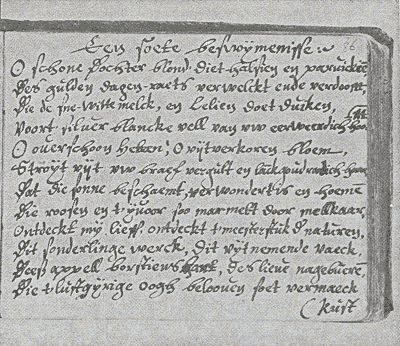 Een soete beswijmenisse.
86
O schone Dochter blond, diet halsien en paruickie
Des gulden dageraets verwelckt ende verdooft,
Die de sne-witte melck, en Lelien doet duiken,
Voort silver blancke vell van uw eerweerdich
O overschoon O uijtverkoren bloem,
Stroyt uijt uw braef vergult en
Dat die sonne beschaemt, verwondert is en hoemt
Die roosen en t'yvoor soo marmelt door mellkaar,
Ontdeckt mij Lieff, ontdeckt t'meesterstuk d'naturen,
Dit sonderlinge werck, dit uijtnemende
Dees appell borstiens des lieve nagebuere,
Die t'lustgyrige oogh beloonen soet vermaeck
Kust